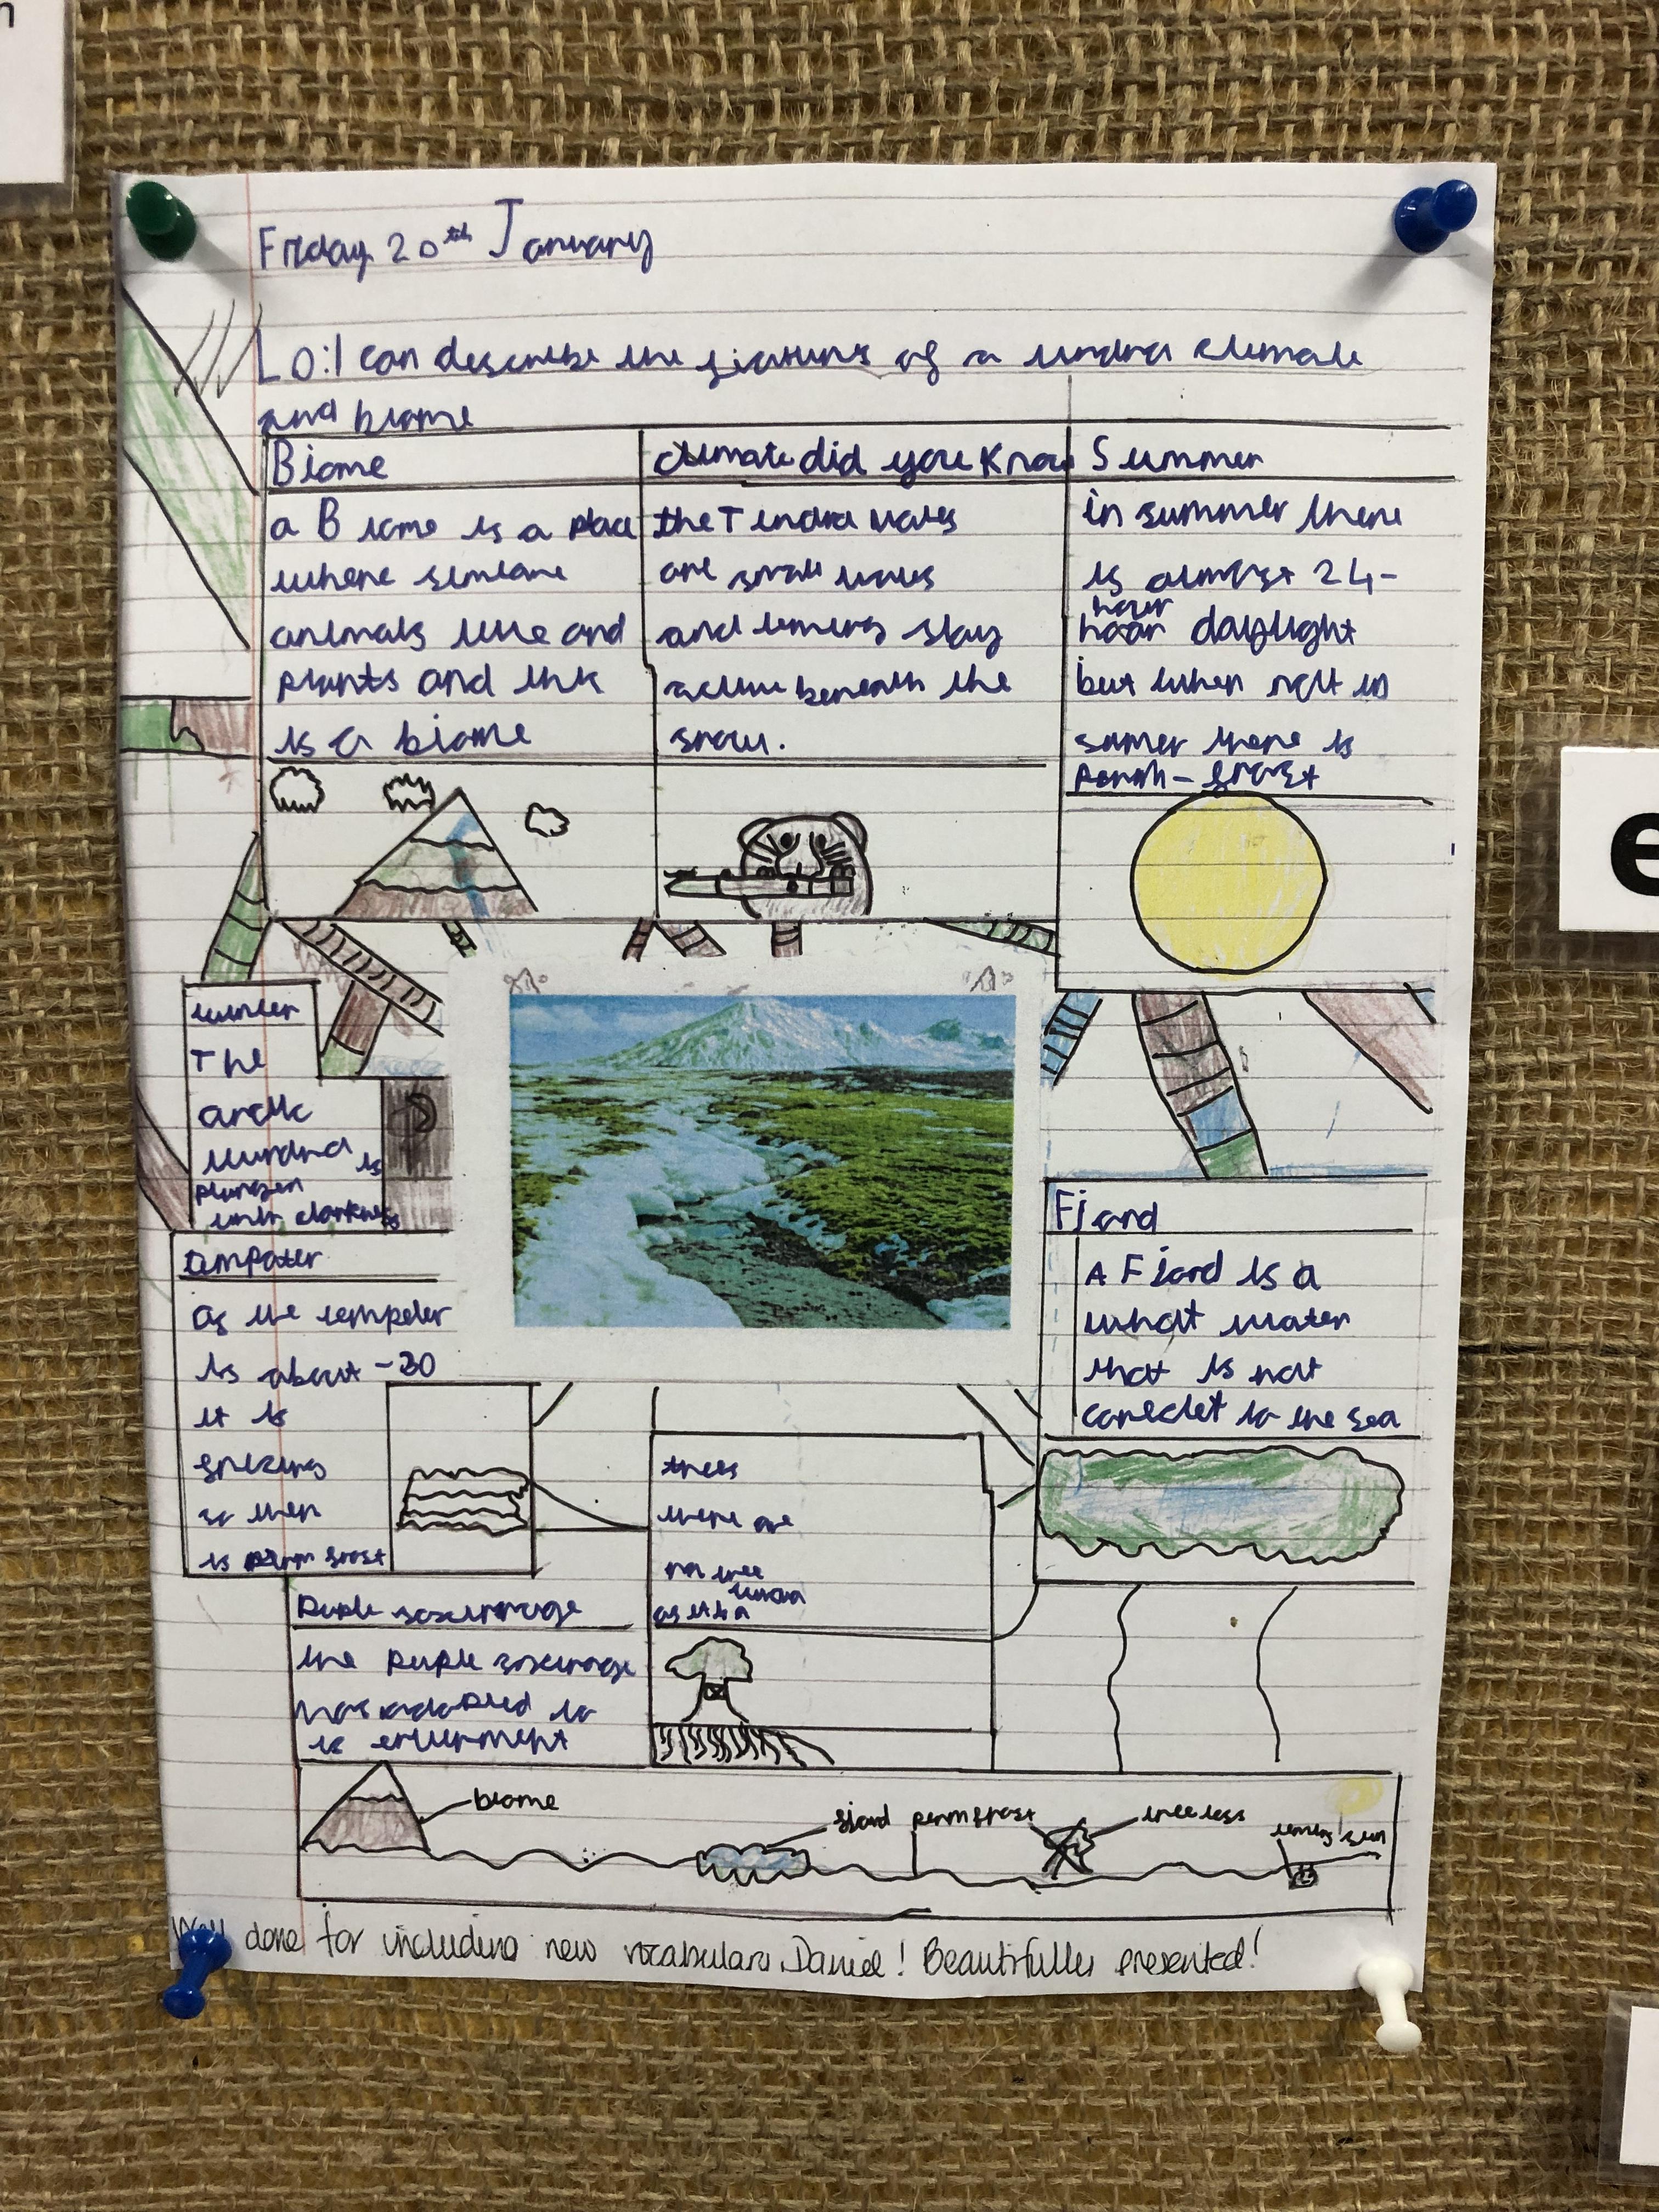 Friday 20th January
LO: I can describe the features of a tundra climate
and biome
Biome
a Biome is a place
where
animals live and
plants and
is a biome
climate did you Know
the Tundra voles
are small voles
and lemings stay
active beneath the
snow.
Summer
in summer there
is almost 24-
hour
daylight
but when not in
sumer there is
perm-frost
winter
The
arctic
tundra is
plungen
with darkness
as the tempeter
is about -30
it is
frezing
so then
is permfrost
Fjord
A Fjord is a
what water
that is not
conectet to the sea
trees
there are
no tree
tundra
as it is a
the puple
has adapted to
is
biome
fjord permfrost treeless
leming sun
Well done for including new vocabulary Daniel! Beautifully presented!
e